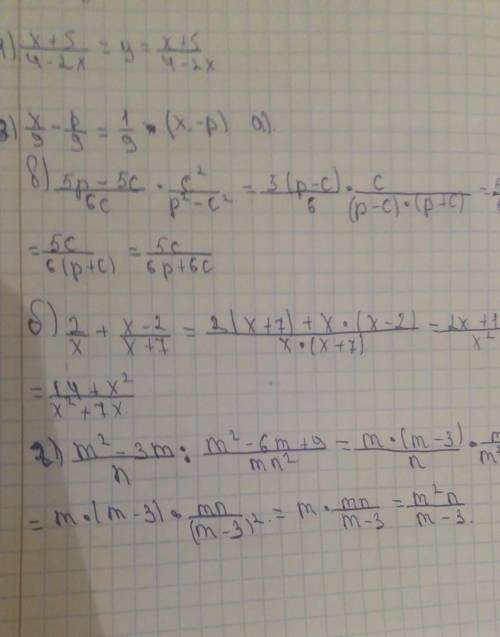 1) (x+5)/(4-2x) = y = (x+5)/(4-2x)
3) x/9 - p/9 = 1/9 · (x-p) а).
в) (5p-5c)/(6c) · c²/(p²-c²) = 5(p-c)/6 · c/((p-c)·(p+c)) =
= 5c/(6(p+c)) = 5c/(6p+6c)
б) 2/x + (x-2)/(x+7) = (2(x+7)+x·(x-2))/(x·(x+7)) =
= (14+x²)/(x²+7x)
г) (m²-3m)/n : (m²-6m+9)/(mn²) = (m·(m-3))/n ·
= m·(m-3)·mn/(m-3)². = m·mn/(m-3) = m²n/(m-3).